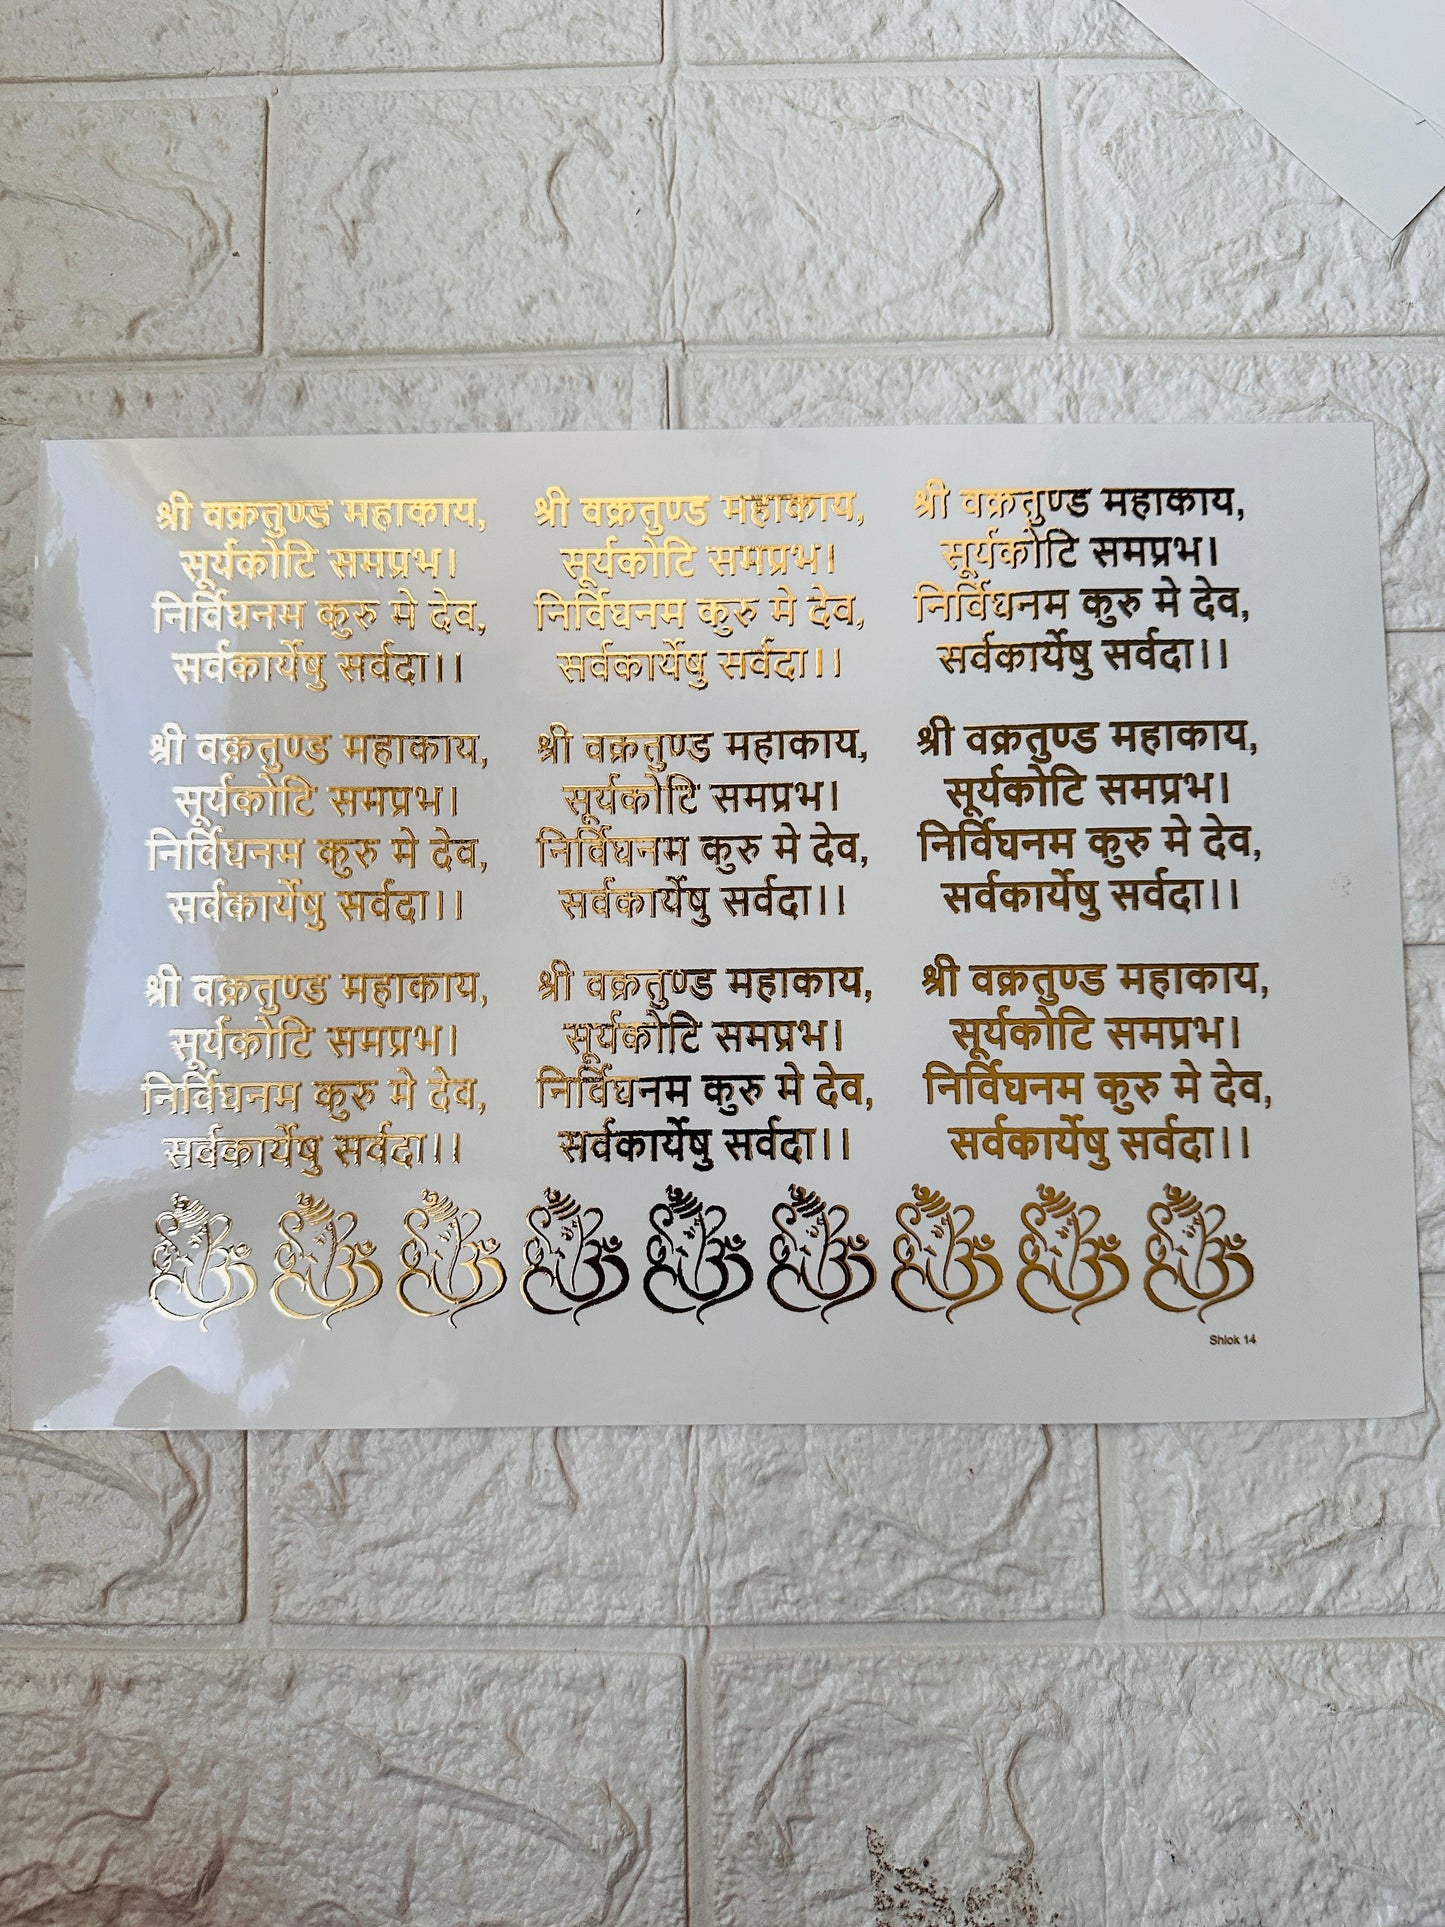 श्री वक्रतुण्ड महाकाय,
सूर्यकोटि समप्रभ।
निर्विघनम कुरु मे देव,
सर्वकार्येषु सर्वदा।।
श्री वक्रतुण्ड महाकाय,
सूर्यकोटि समप्रभ।
निर्विघनम कुरु मे देव,
सर्वकार्येषु सर्वदा।।
श्री वक्रतुण्ड महाकाय,
सूर्यकोटि समप्रभ।
निर्विघनम कुरु मे देव,
सर्वकार्येषु सर्वदा।।
श्री वक्रतुण्ड महाकाय,
सूर्यकोटि समप्रभ।
निर्विघनम कुरु मे देव,
सर्वकार्येषु सर्वदा।।
श्री वक्रतुण्ड महाकाय,
सूर्यकोटि समप्रभ।
निर्विघनम कुरु मे देव,
सर्वकार्येषु सर्वदा।।
श्री वक्रतुण्ड महाकाय,
सूर्यकोटि समप्रभ।
निर्विघनम कुरु मे देव,
सर्वकार्येषु सर्वदा।।
श्री वक्रतुण्ड महाकाय,
सूर्यकोटि समप्रभ।
निर्विघनम कुरु मे देव,
सर्वकार्येषु सर्वदा।।
श्री वक्रतुण्ड महाकाय,
सूर्यकोटि समप्रभ।
निर्विघनम कुरु मे देव,
सर्वकार्येषु सर्वदा।।
श्री वक्रतुण्ड महाकाय,
सूर्यकोटि समप्रभ।
निर्विघनम कुरु मे देव,
सर्वकार्येषु सर्वदा।।
Shlok 14